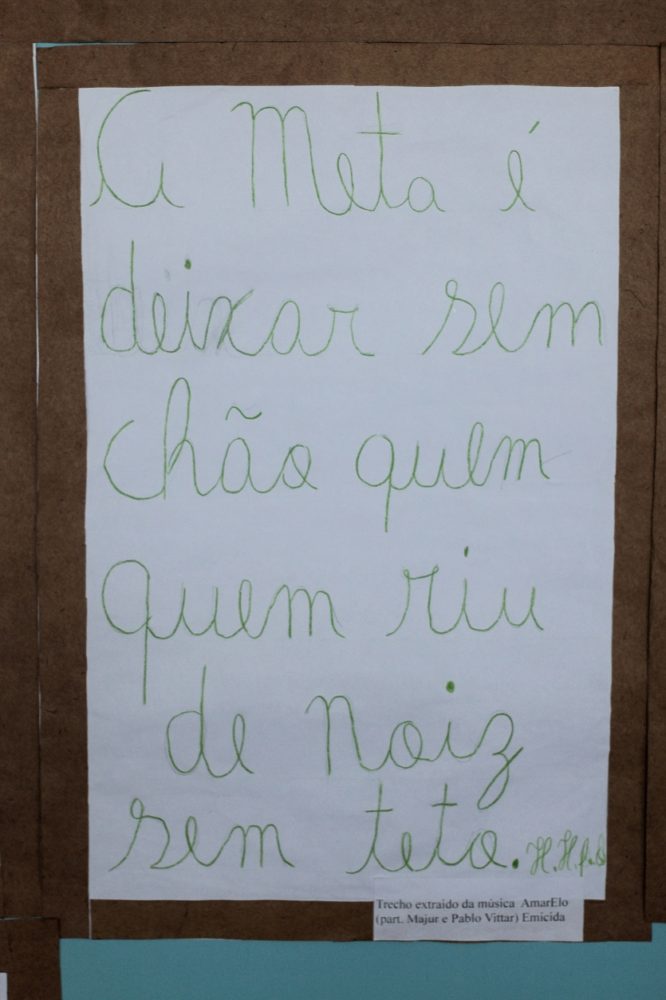 A Meta é
deixar sem
chão quem
quem riu
de noiz
sem teto. H.H.P.S
Trecho extraído da música AmarElo
(part. Majur e Pablo Vittar) Emicida